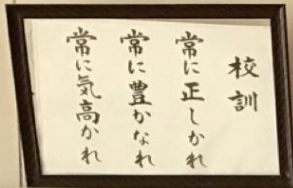 校訓
常に正しかれ
常に豊かなれ
常に気高かれ